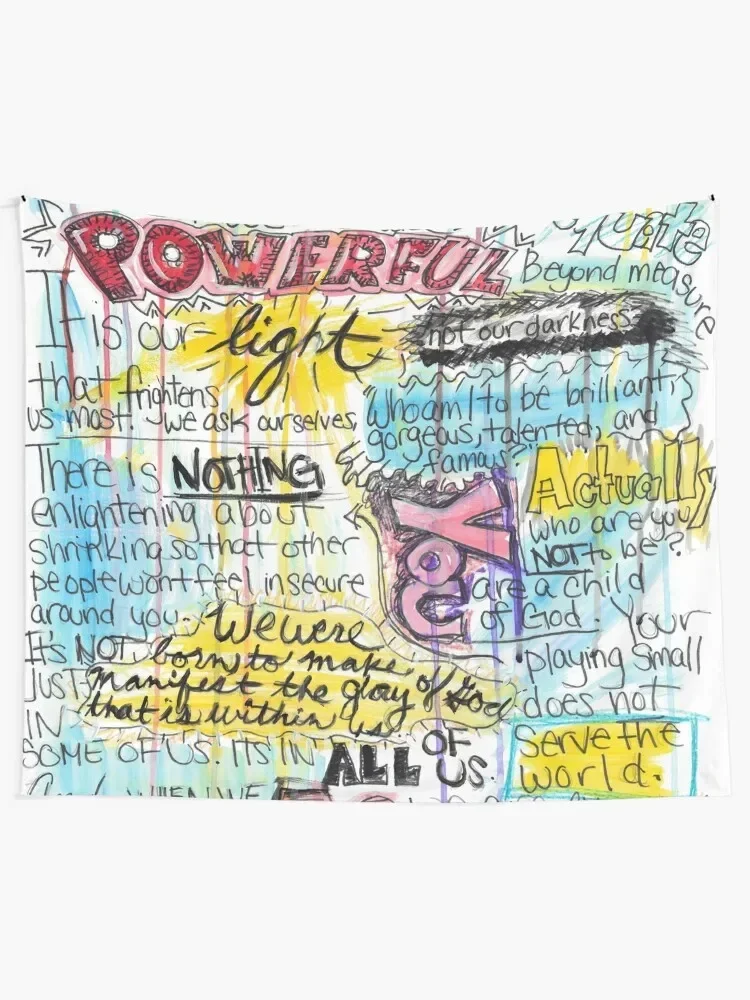 POWERFUL
Beyond measure
It is our light
not our darkness
that frightens
us most. We ask ourselves,
Who am I to be brilliant,
gorgeous, talented, and
famous
Actually
who are you
NOT to be?
There is NOTHING
enlightening about
shrinking so that other
people wont feel insecure
around you.
YOU
are a child
of God. Your
playing small
does not
Serve the
world.
We were
born to make
manifest the glory of God
that is within us.
It's NOT
JUST
IN
SOME OF US. ITS IN ALL OF US.
WHEN WE